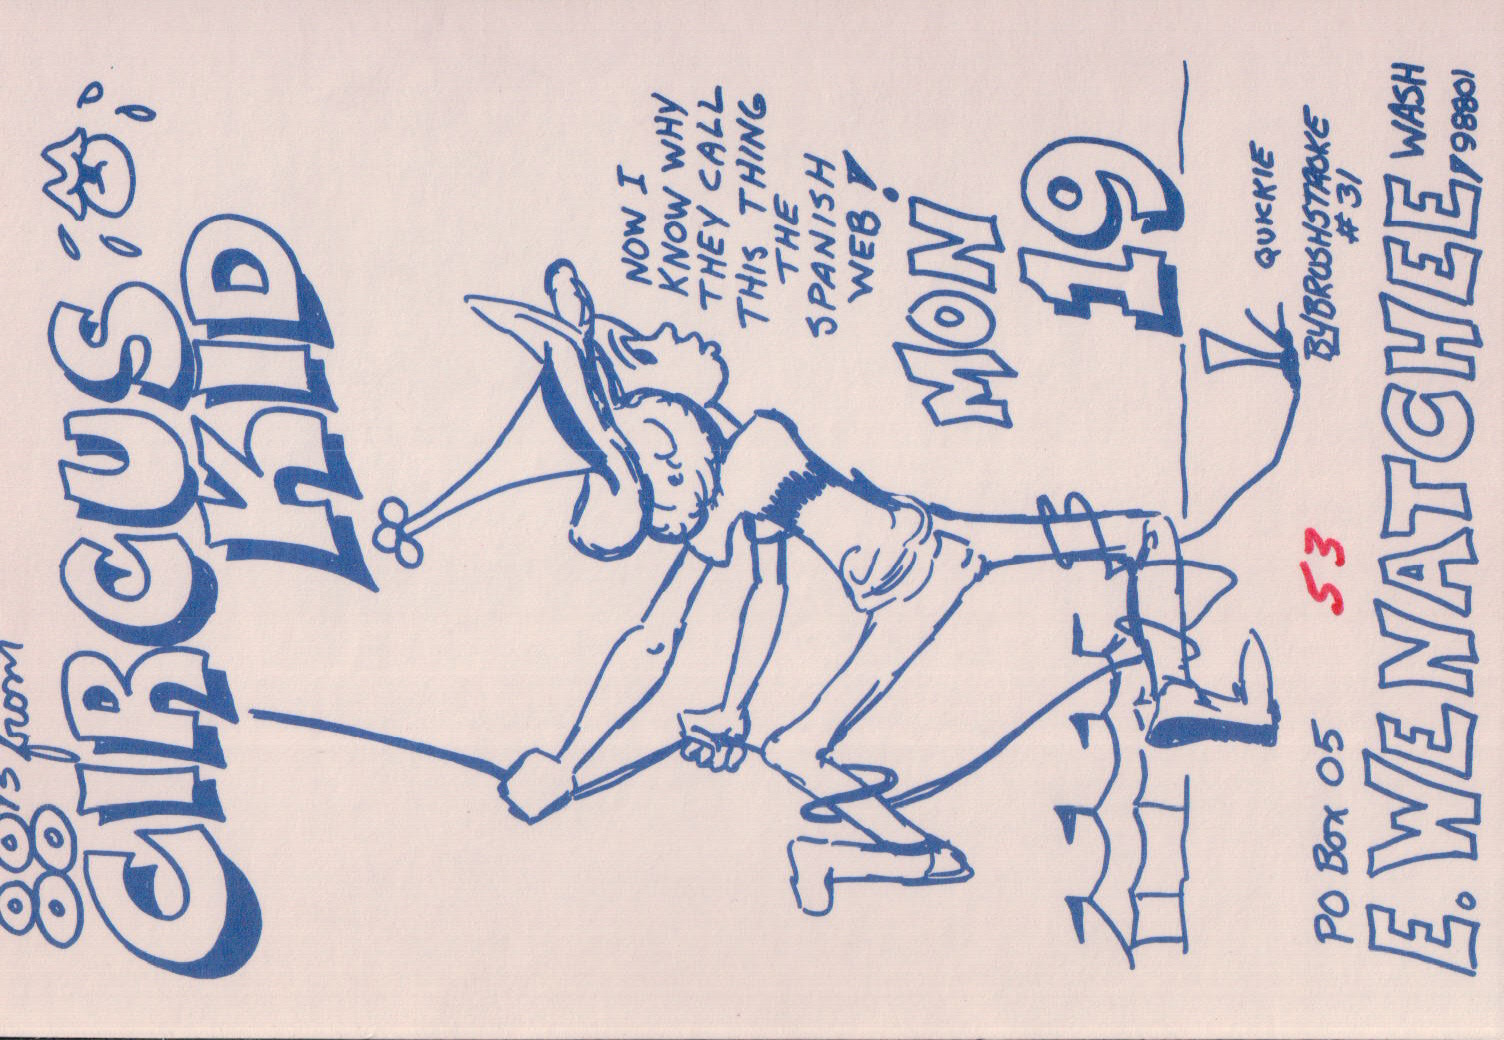 from
CIRCUS
KID
NOW I
KNOW WHY
THEY CALL
THIS THING
THE
SPANISH
WEB!
MON
19
QUICKIE
BY BRUSHSTROKE
#31
PO BOX 05
53
E. WENATCHEE, WASH
98801